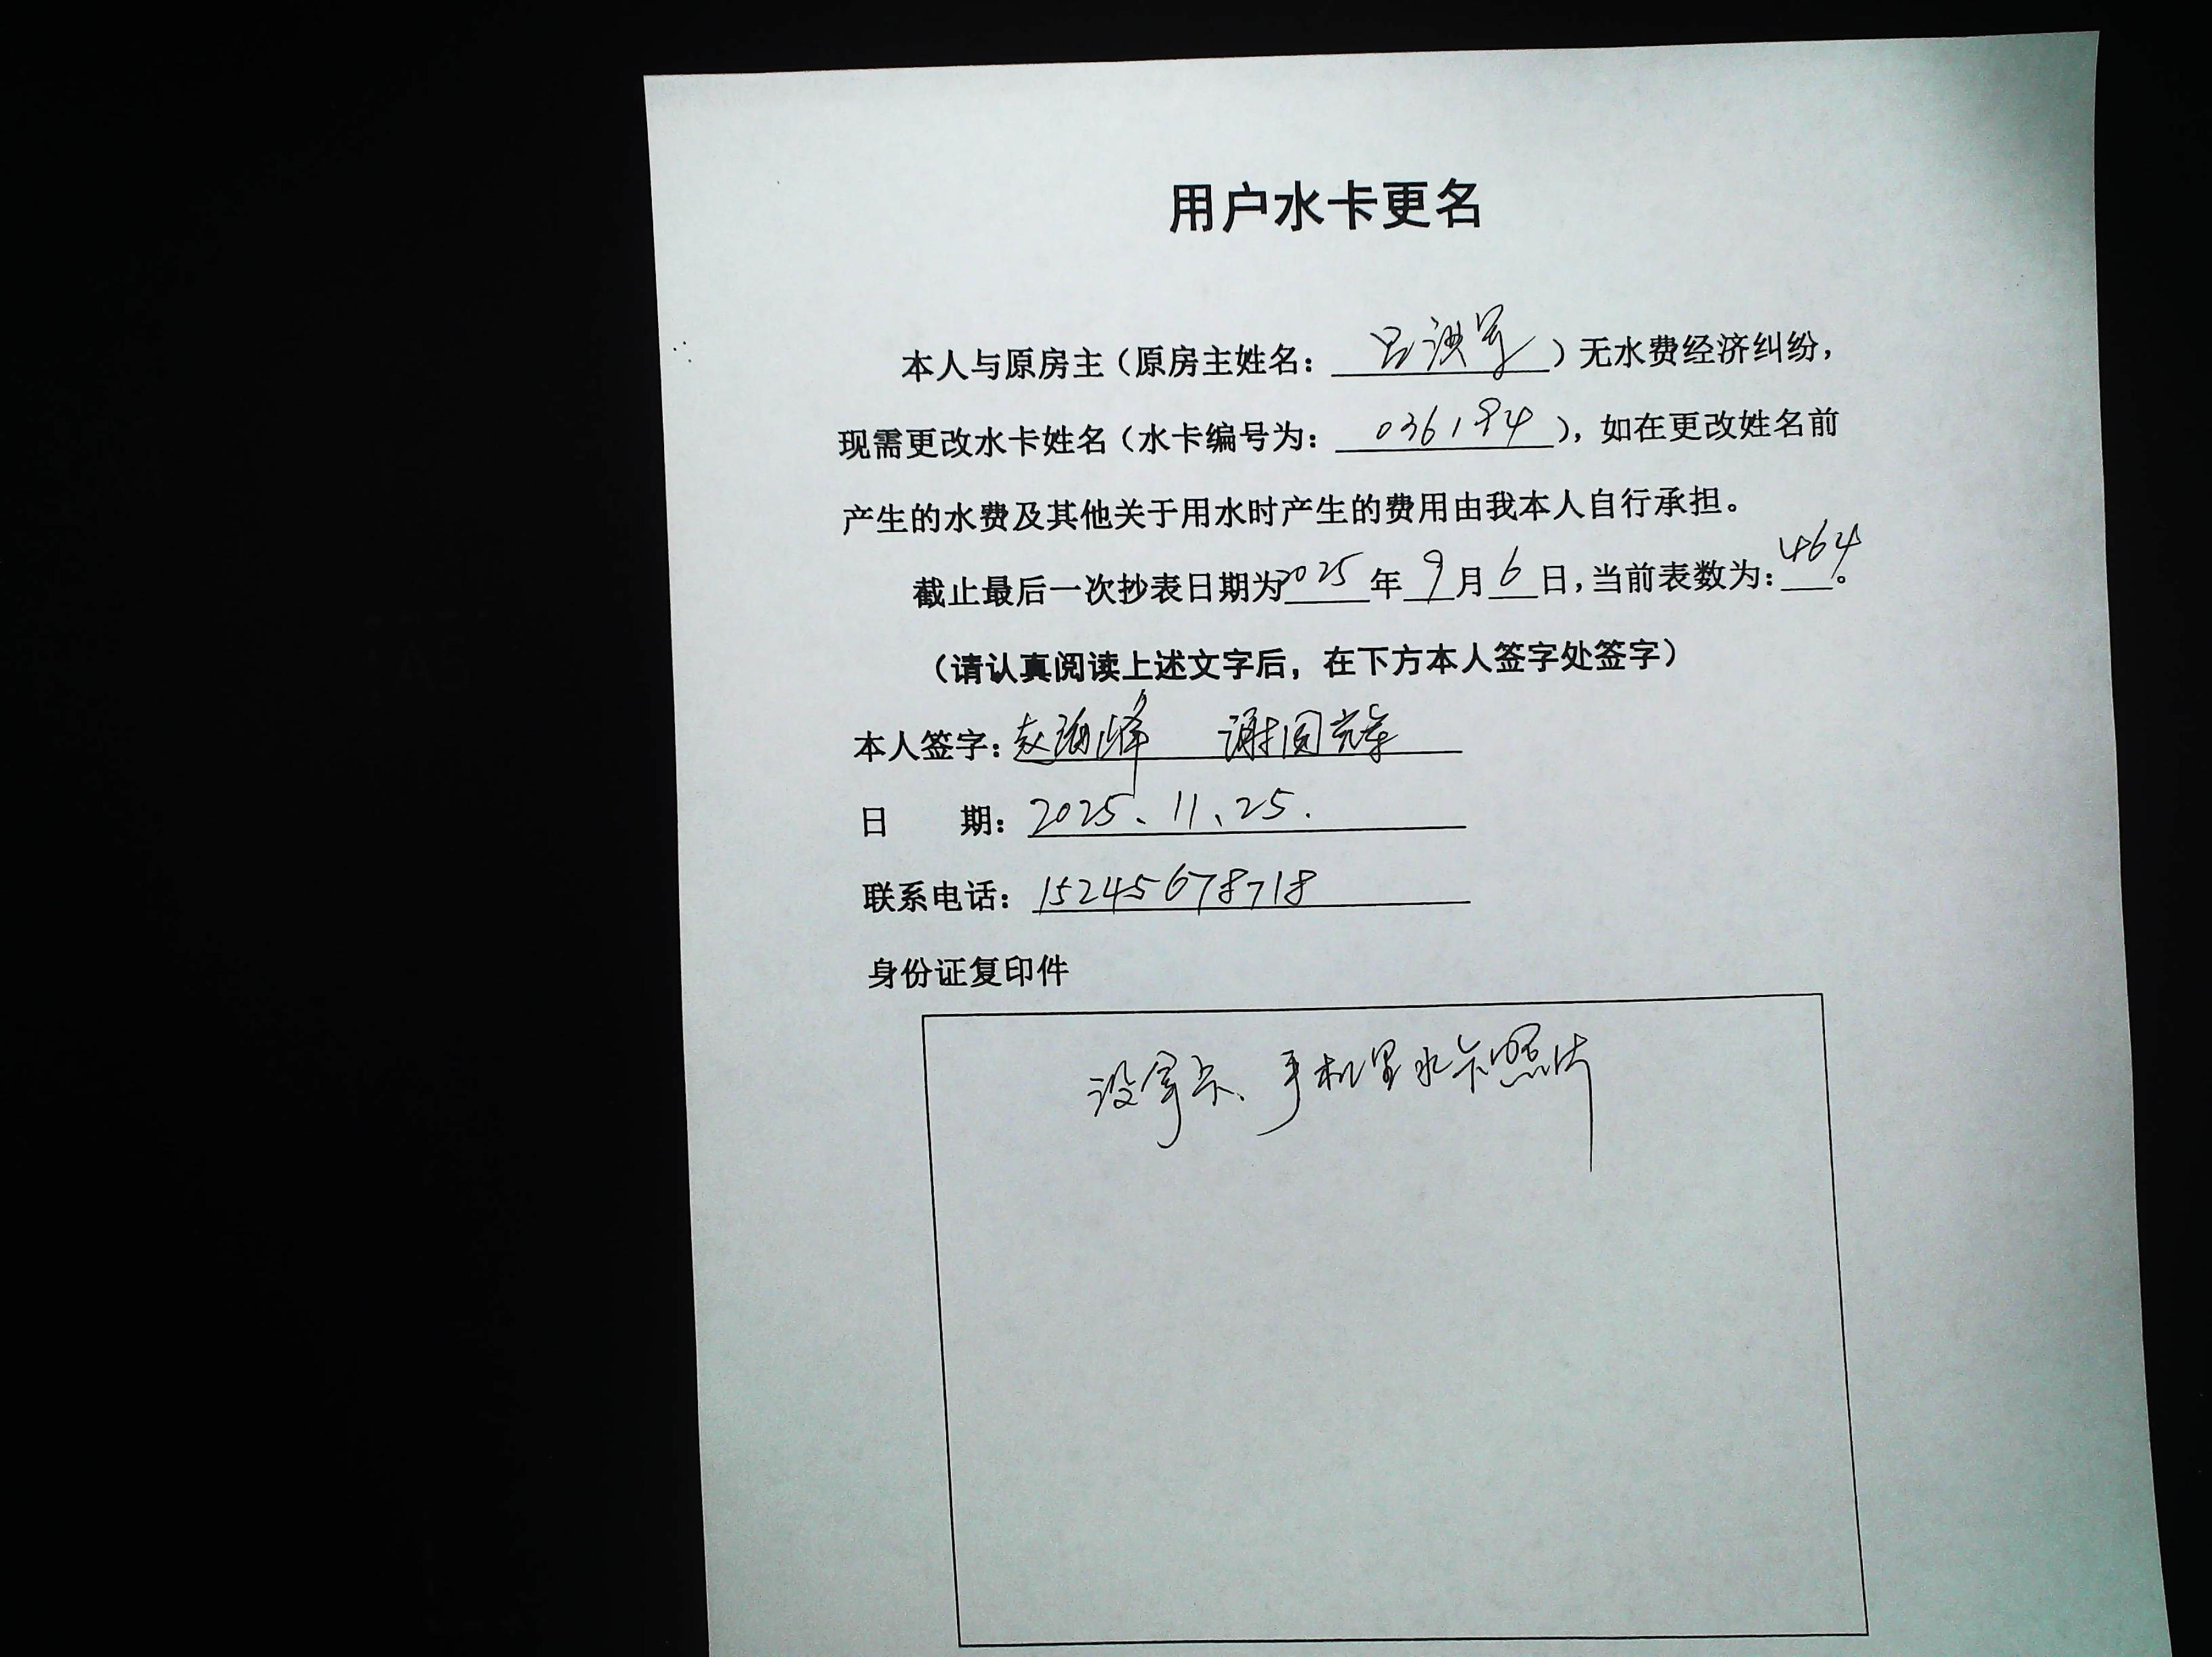 用户水卡更名
本人与原房主（原房主姓名：吕洪军）无水费经济纠纷，
现需更改水卡姓名（水卡编号为：036194），如在更改姓名前
产生的水费及其他关于用水时产生的费用由我本人自行承担。
截止最后一次抄表日期为2025年9月6日，当前表数为：464。
（请认真阅读上述文字后，在下方本人签字处签字）
本人签字：赵海峰 谢
日 期：2025、11、25.
联系电话：15245678718
身份证复印件
没拿卡、手机里水卡照片